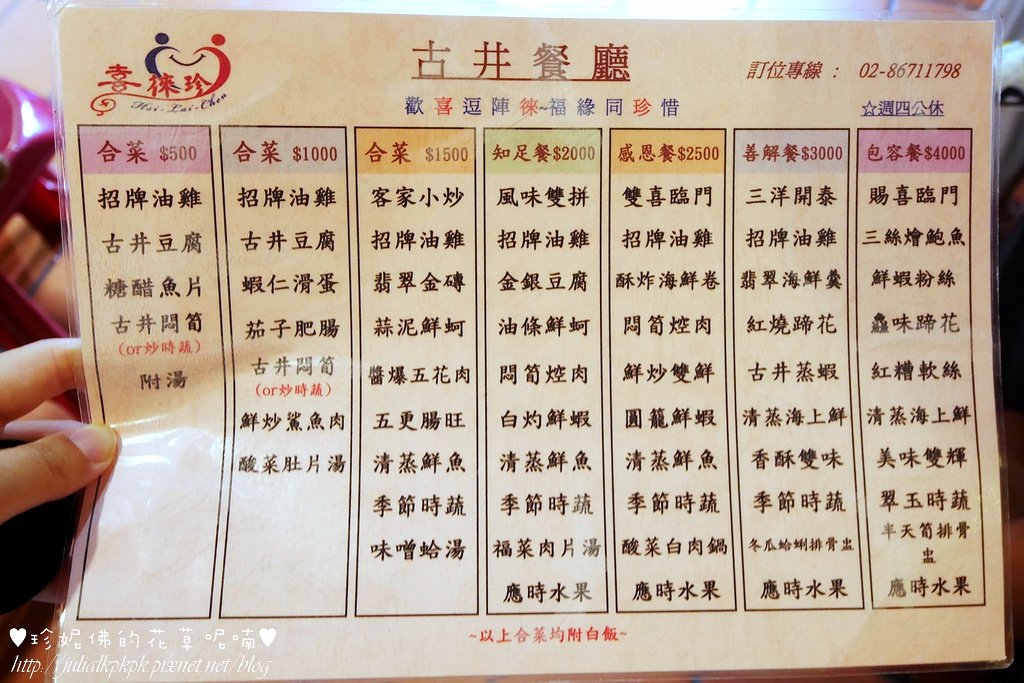 喜徠珍
Hsi-Lai-Chen
古井餐廳
訂位專線： 02-86711798
歡喜逗陣徠~福緣同珍惜
☆週四公休
合菜 $500
招牌油雞
古井豆腐
糖醋魚片
古井悶筍
(or炒時蔬)
附湯
合菜 $1000
招牌油雞
古井豆腐
蝦仁滑蛋
茄子肥腸
古井悶筍
(or炒時蔬)
鮮炒鯊魚肉
酸菜肚片湯
合菜 $1500
客家小炒
招牌油雞
翡翠金磚
蒜泥鮮蚵
醬爆五花肉
五更腸旺
清蒸鮮魚
季節時蔬
味噌蛤湯
知足餐$2000
風味雙拼
招牌油雞
金銀豆腐
油條鮮蚵
悶筍焢肉
白灼鮮蝦
清蒸鮮魚
季節時蔬
福菜肉片湯
應時水果
感恩餐$2500
雙喜臨門
招牌油雞
酥炸海鮮卷
悶筍焢肉
鮮炒雙鮮
圓籠鮮蝦
清蒸鮮魚
季節時蔬
酸菜白肉鍋
應時水果
善解餐$3000
三洋開泰
招牌油雞
翡翠海鮮羹
紅燒蹄花
古井蒸蝦
清蒸海上鮮
香酥雙味
季節時蔬
冬瓜蛤蜊排骨盅
應時水果
包容餐$4000
賜喜臨門
三絲燴鮑魚
鮮蝦粉絲
味蹄花
紅糟軟絲
清蒸海上鮮
美味雙輝
翠玉時蔬
半天筍排骨
盅
應時水果
~以上合菜均附白飯~
♥珍妮佛的花草呢喃♥
http://julialkpkpk.pixnet.net/blog